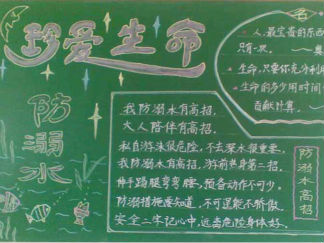 珍爱生命
防溺水
我防溺水有高招,
大人陪伴有高招。
私自游泳很危险,不去深水很重要。
我防溺水有高招,游前热身第二招。
伸手踢腿弯弯腰,预备动作不可少。
防溺措施要知道,不可逞能不骄傲。
安全二字记心中,远离危险身体好。
防溺水高招
名
人,最宝贵的东西
只有一次。
生命,只要你充分利
生命的多少用时间
贡献计算。